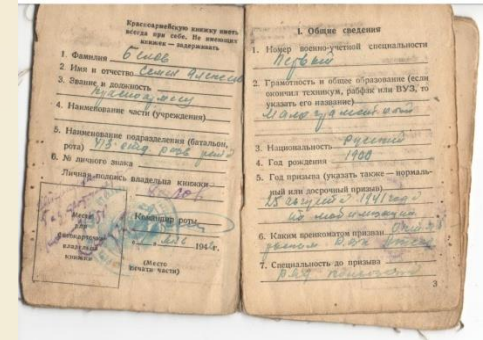 Красноармейскую книжку иметь
всегда при себе. Не имеющих
книжек — задерживать
1. Фамилия Белов
2. Имя и отчество Семен
3. Звание и должность
красноармеец
4. Наименование части (учреждения)
5. Наименование подразделения (батальон,
рота) 413 отд.
6. № личного знака
Личная подпись владельца книжки
Белов
Место
для
фотокарточки
владельца
книжки
Командир роты
194
(Место
печати части)
I. Общие сведения
1. Номер военно-учетной специальности
Первый
2. Грамотность и общее образование (если
окончил техникум, рабфак или ВУЗ, то
указать его название)
Малограмотный
3. Национальность Русский
4. Год рождения 1900
5. Год призыва (указать также — нормаль-
ный или досрочный призыв)
25 августа 1941 года
по мобилизации
6. Каким военкоматом призван
7. Специальность до призыва
3